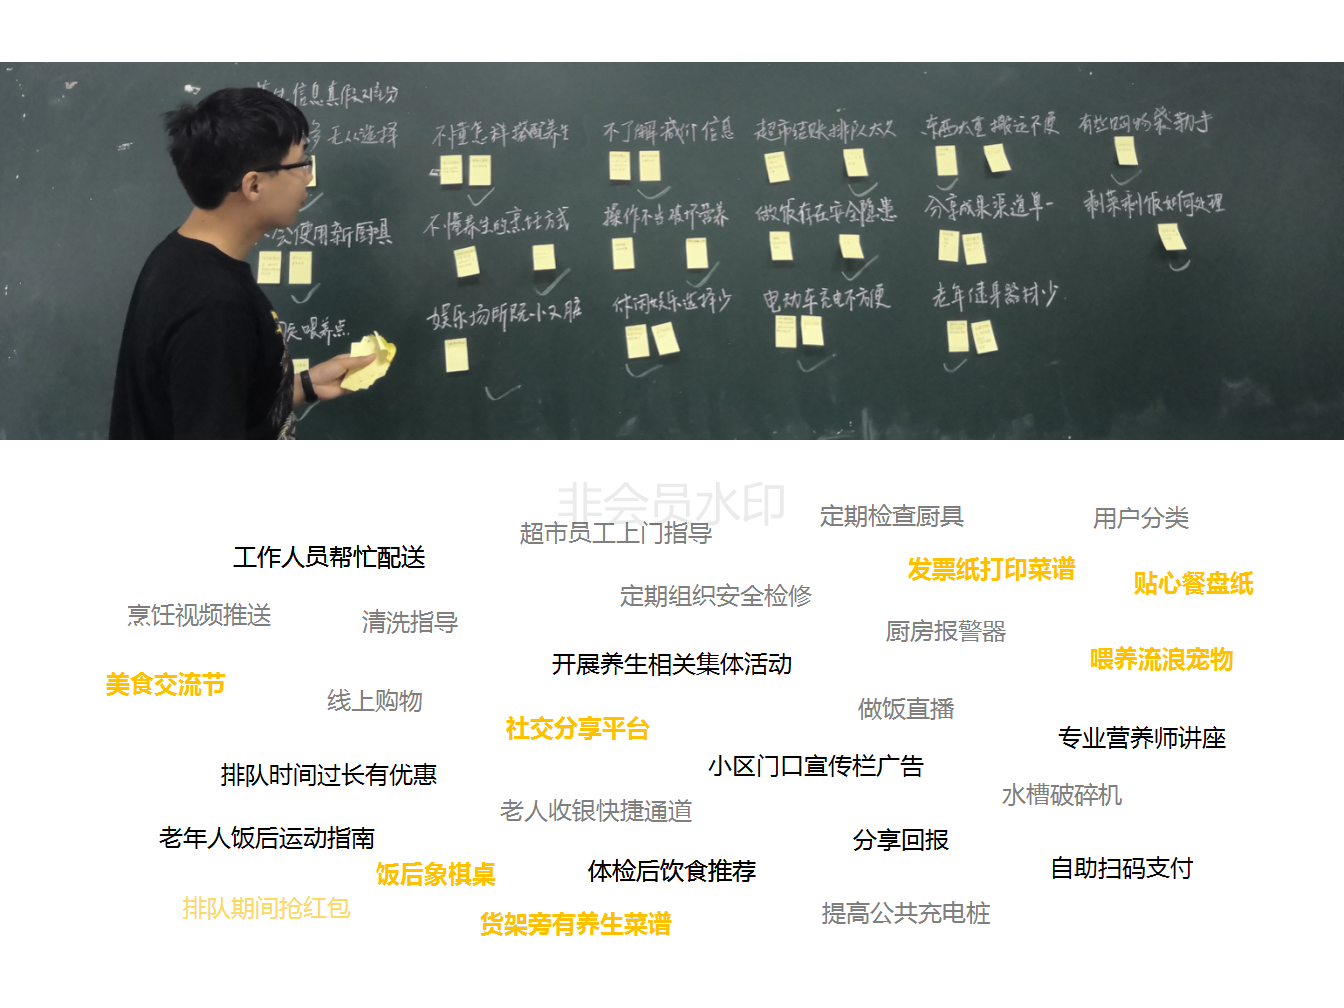 信息真假难分
多 无从选择
不懂怎样搭配养生
不了解减价信息
超市结账排队太久
东西太重 搬运不便
有些购物袋勒手
会使用新厨具
不懂养生的烹饪方式
操作不当破坏营养
做饭存在安全隐患
分享成果渠道单一
剩菜剩饭如何处理
喂养点
娱乐场所既小又脏
休闲娱乐选择少
电动车充电不方便
老年健身器材少
非会员水印
超市员工上门指导
定期检查厨具
用户分类
工作人员帮忙配送
发票纸打印菜谱
贴心餐盘纸
烹饪视频推送
清洗指导
定期组织安全检修
厨房报警器
开展养生相关集体活动
喂养流浪宠物
美食交流节
线上购物
社交分享平台
做饭直播
专业营养师讲座
排队时间过长有优惠
小区门口宣传栏广告
老人收银快捷通道
水槽破碎机
老年人饭后运动指南
分享回报
饭后象棋桌
体检后饮食推荐
自助扫码支付
排队期间抢红包
货架旁有养生菜谱
提高公共充电桩